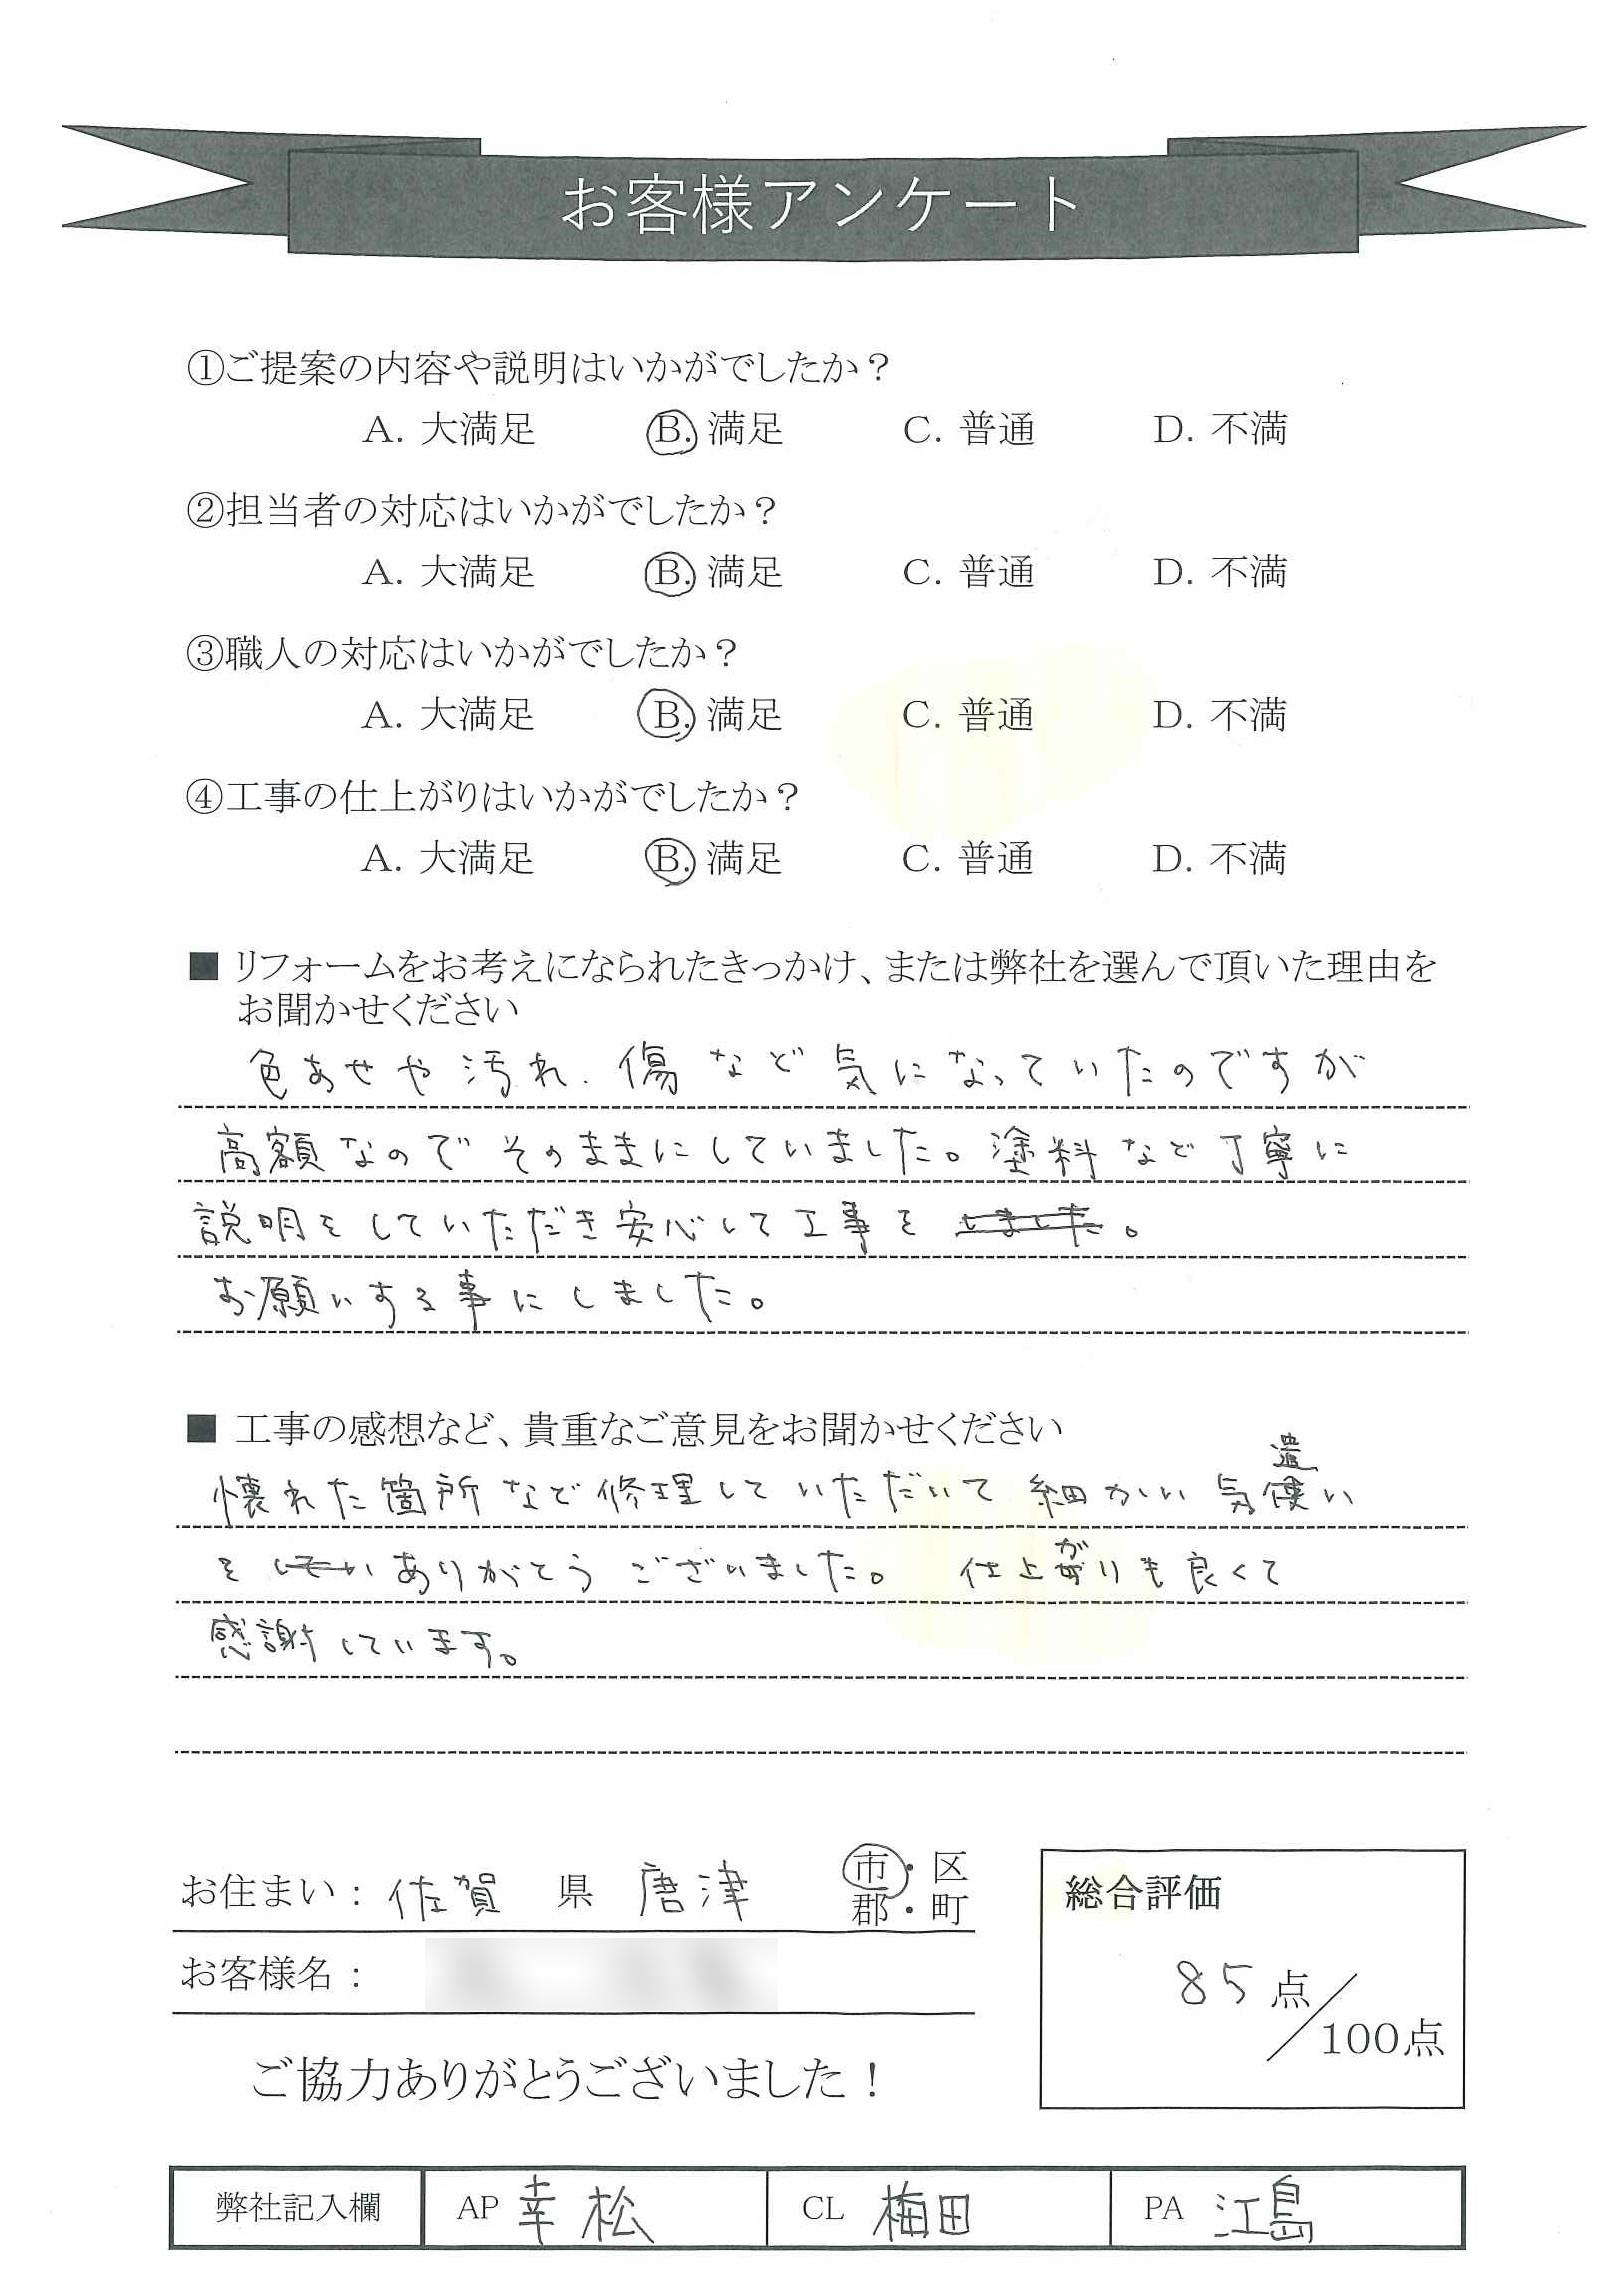 お客様アンケート
①ご提案の内容や説明はいかがでしたか？
A. 大満足 B. 満足 C. 普通 D. 不満
②担当者の対応はいかがでしたか？
A. 大満足 B. 満足 C. 普通 D. 不満
③職人の対応はいかがでしたか？
A. 大満足 B. 満足 C. 普通 D. 不満
④工事の仕上がりはいかがでしたか？
A. 大満足 B. 満足 C. 普通 D. 不満
■ リフォームをお考えになられたきっかけ、または弊社を選んで頂いた理由を
お聞かせください
色あせや汚れ、傷など気になっていたのですが
高額なのでそのままにしていました。塗料など丁寧に
説明をしていただき安心して工事を しました。
お願いする事にしました。
■ 工事の感想など、貴重なご意見をお聞かせください
懐れた箇所など修理していただいて細かい気遣い
を ありがとうございました。 仕上がりも良くて
感謝しています。
お住まい： 佐賀 県 唐津 市・区
郡・町
お客様名：
総合評価
85点／100点
ご協力ありがとうございました！
弊社記入欄 AP 幸松 CL 梅田 PA 江島